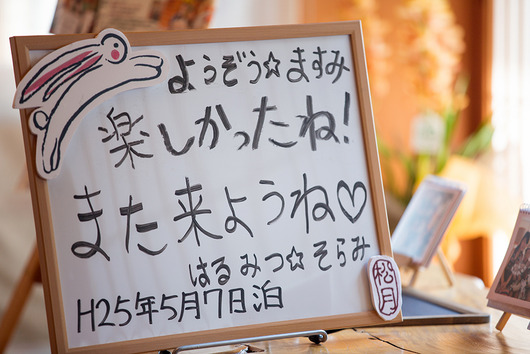 ようぞう☆ますみ
楽しかったね!
また来ようね♡
はるみつ☆そらみ
H25年5月7日泊
松月